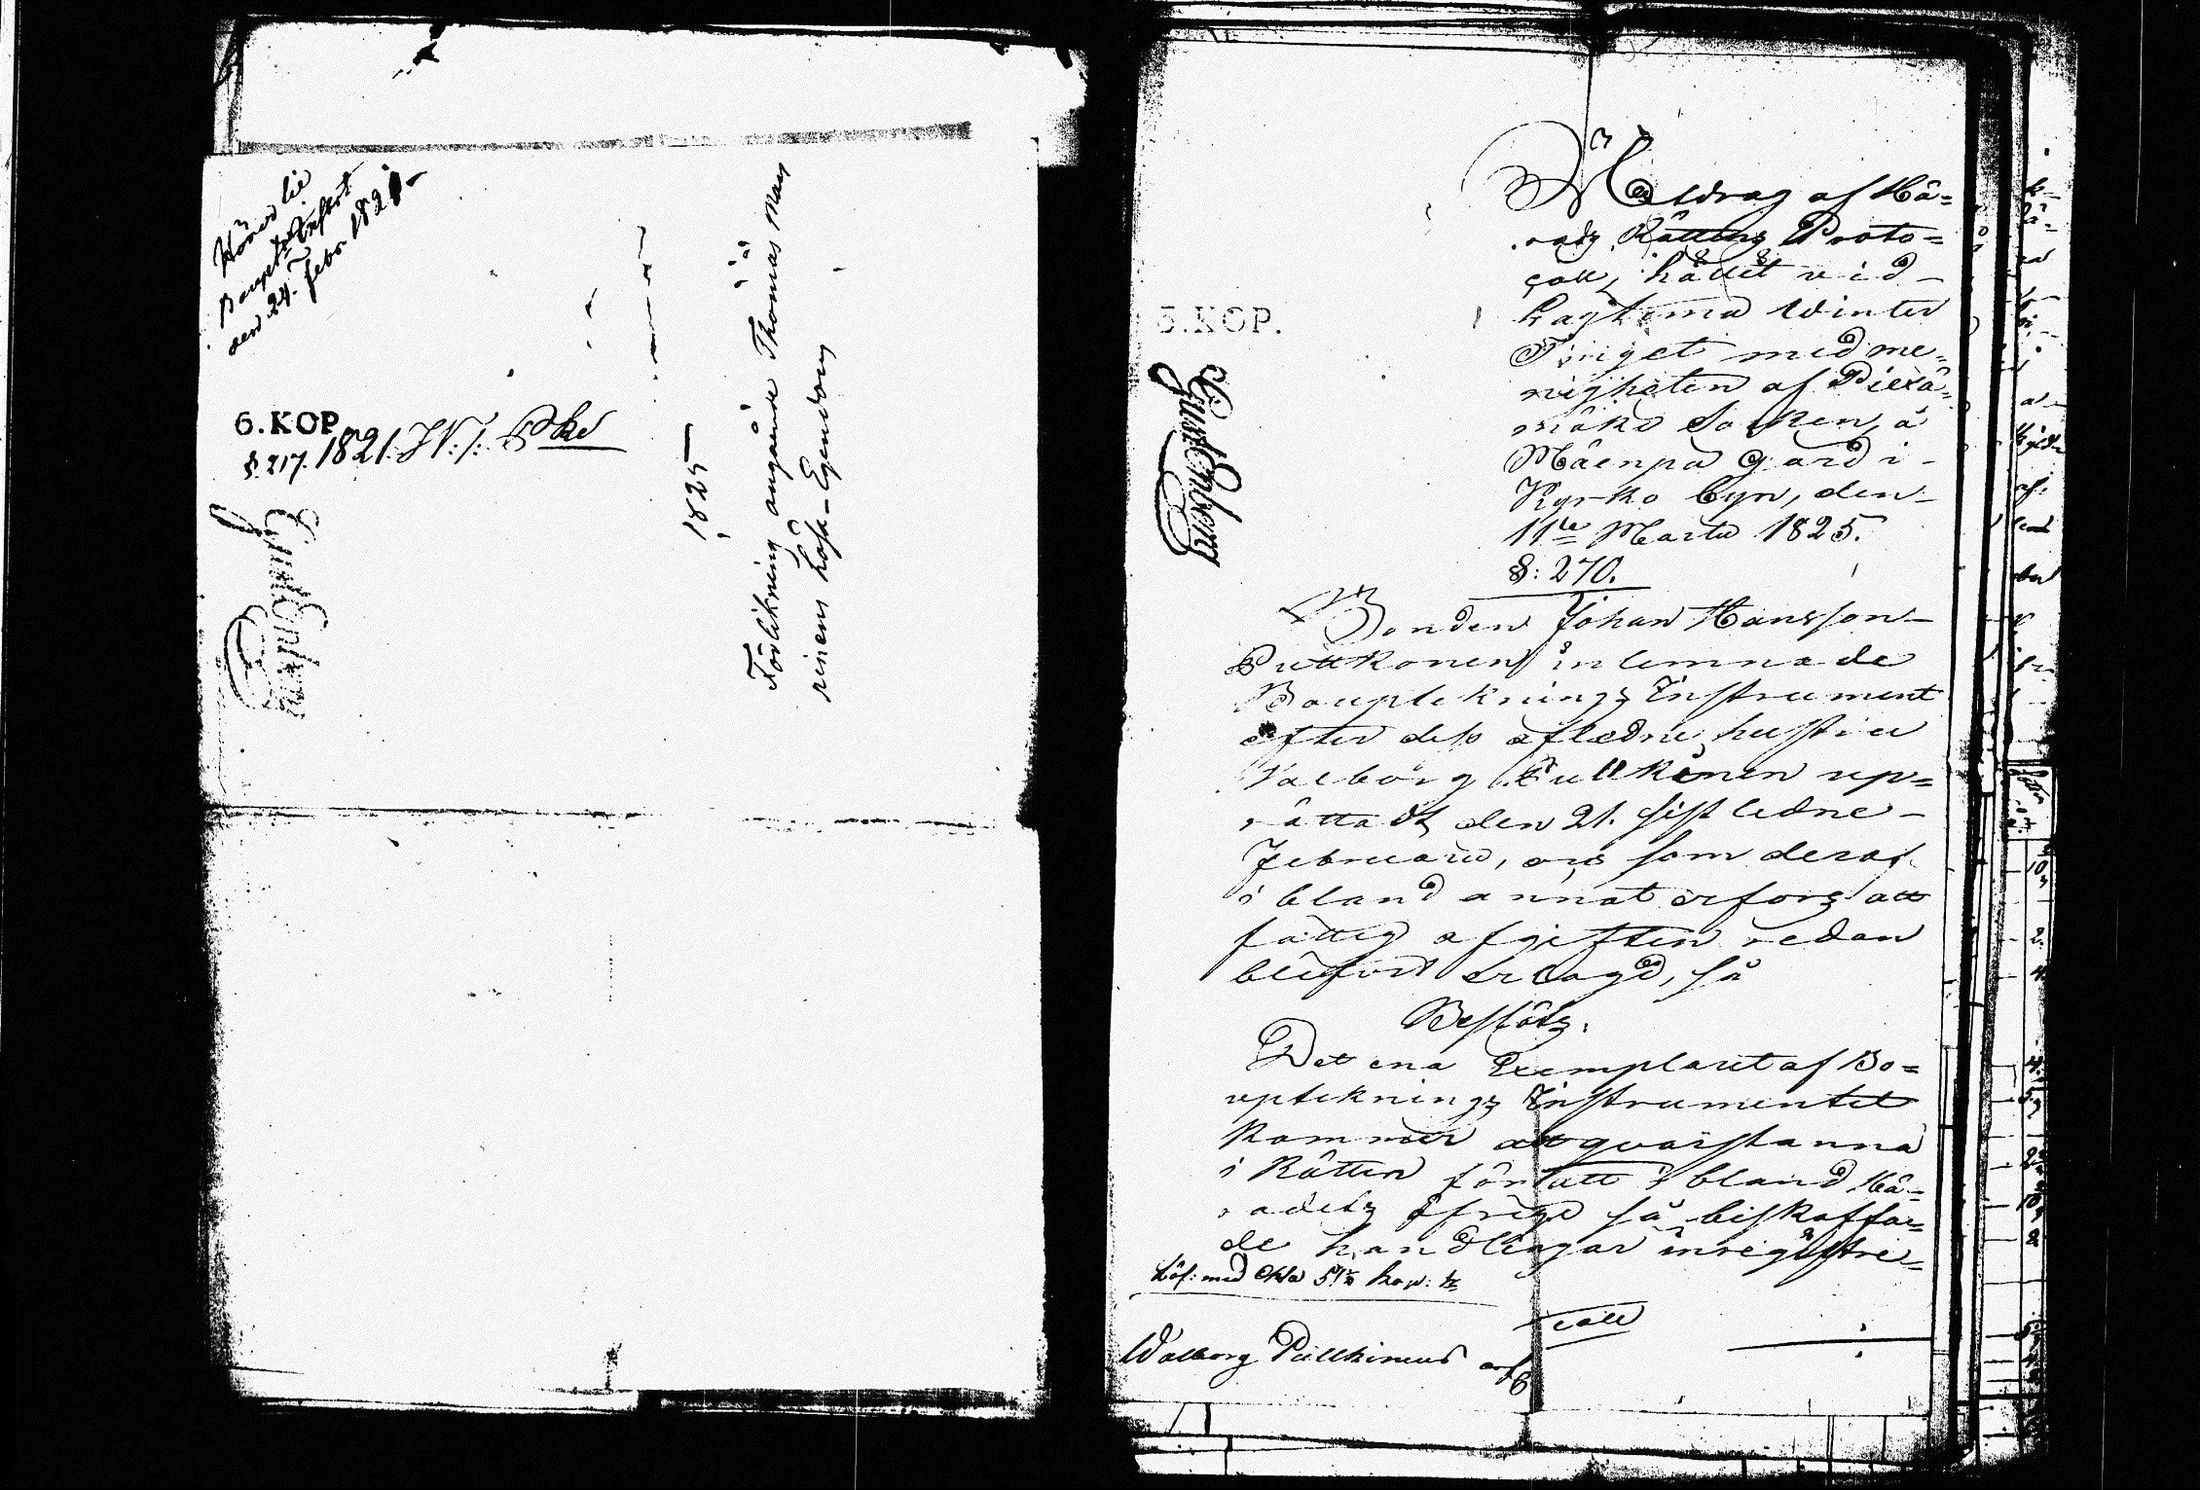 Hörer till
Bouptn Instrt
den 24. febr 1821.
6. KOP
§. 217. 1821. W. T.
1825
Förlikning angående Thomas Man
ninens Lösa Egendom
5. KOP.
Utdrag af Hä-
rads Rättens Proto-
coll, hållit vid
Lagtima Winter
Tinget med me-
nigheten af Piexä-
mäki Socken, å
Mäenpä gård i
Kyrko byn, den
11te Martii 1825.
§: 270.
Bonden Johan Hansson
Pulkonen inlemnade
Boupteknings Instrument
efter dess afledne hustru
Valborg Pulkinen up-
rättadt den 21. sistledne
Februarii, och som deraf
ibland annat erfors att
fattig afgiften redan
blifvit erlagd, så
Beslöts:
Det ena Exemplaret af Bo-
upteknings Instrumentet
kommer att qvarstanna
i Rätten för att ibland Hä-
radets öfrige så beskaffa-
de handlingar inregistre-
Lös: med
Walborg Pullkinens arf